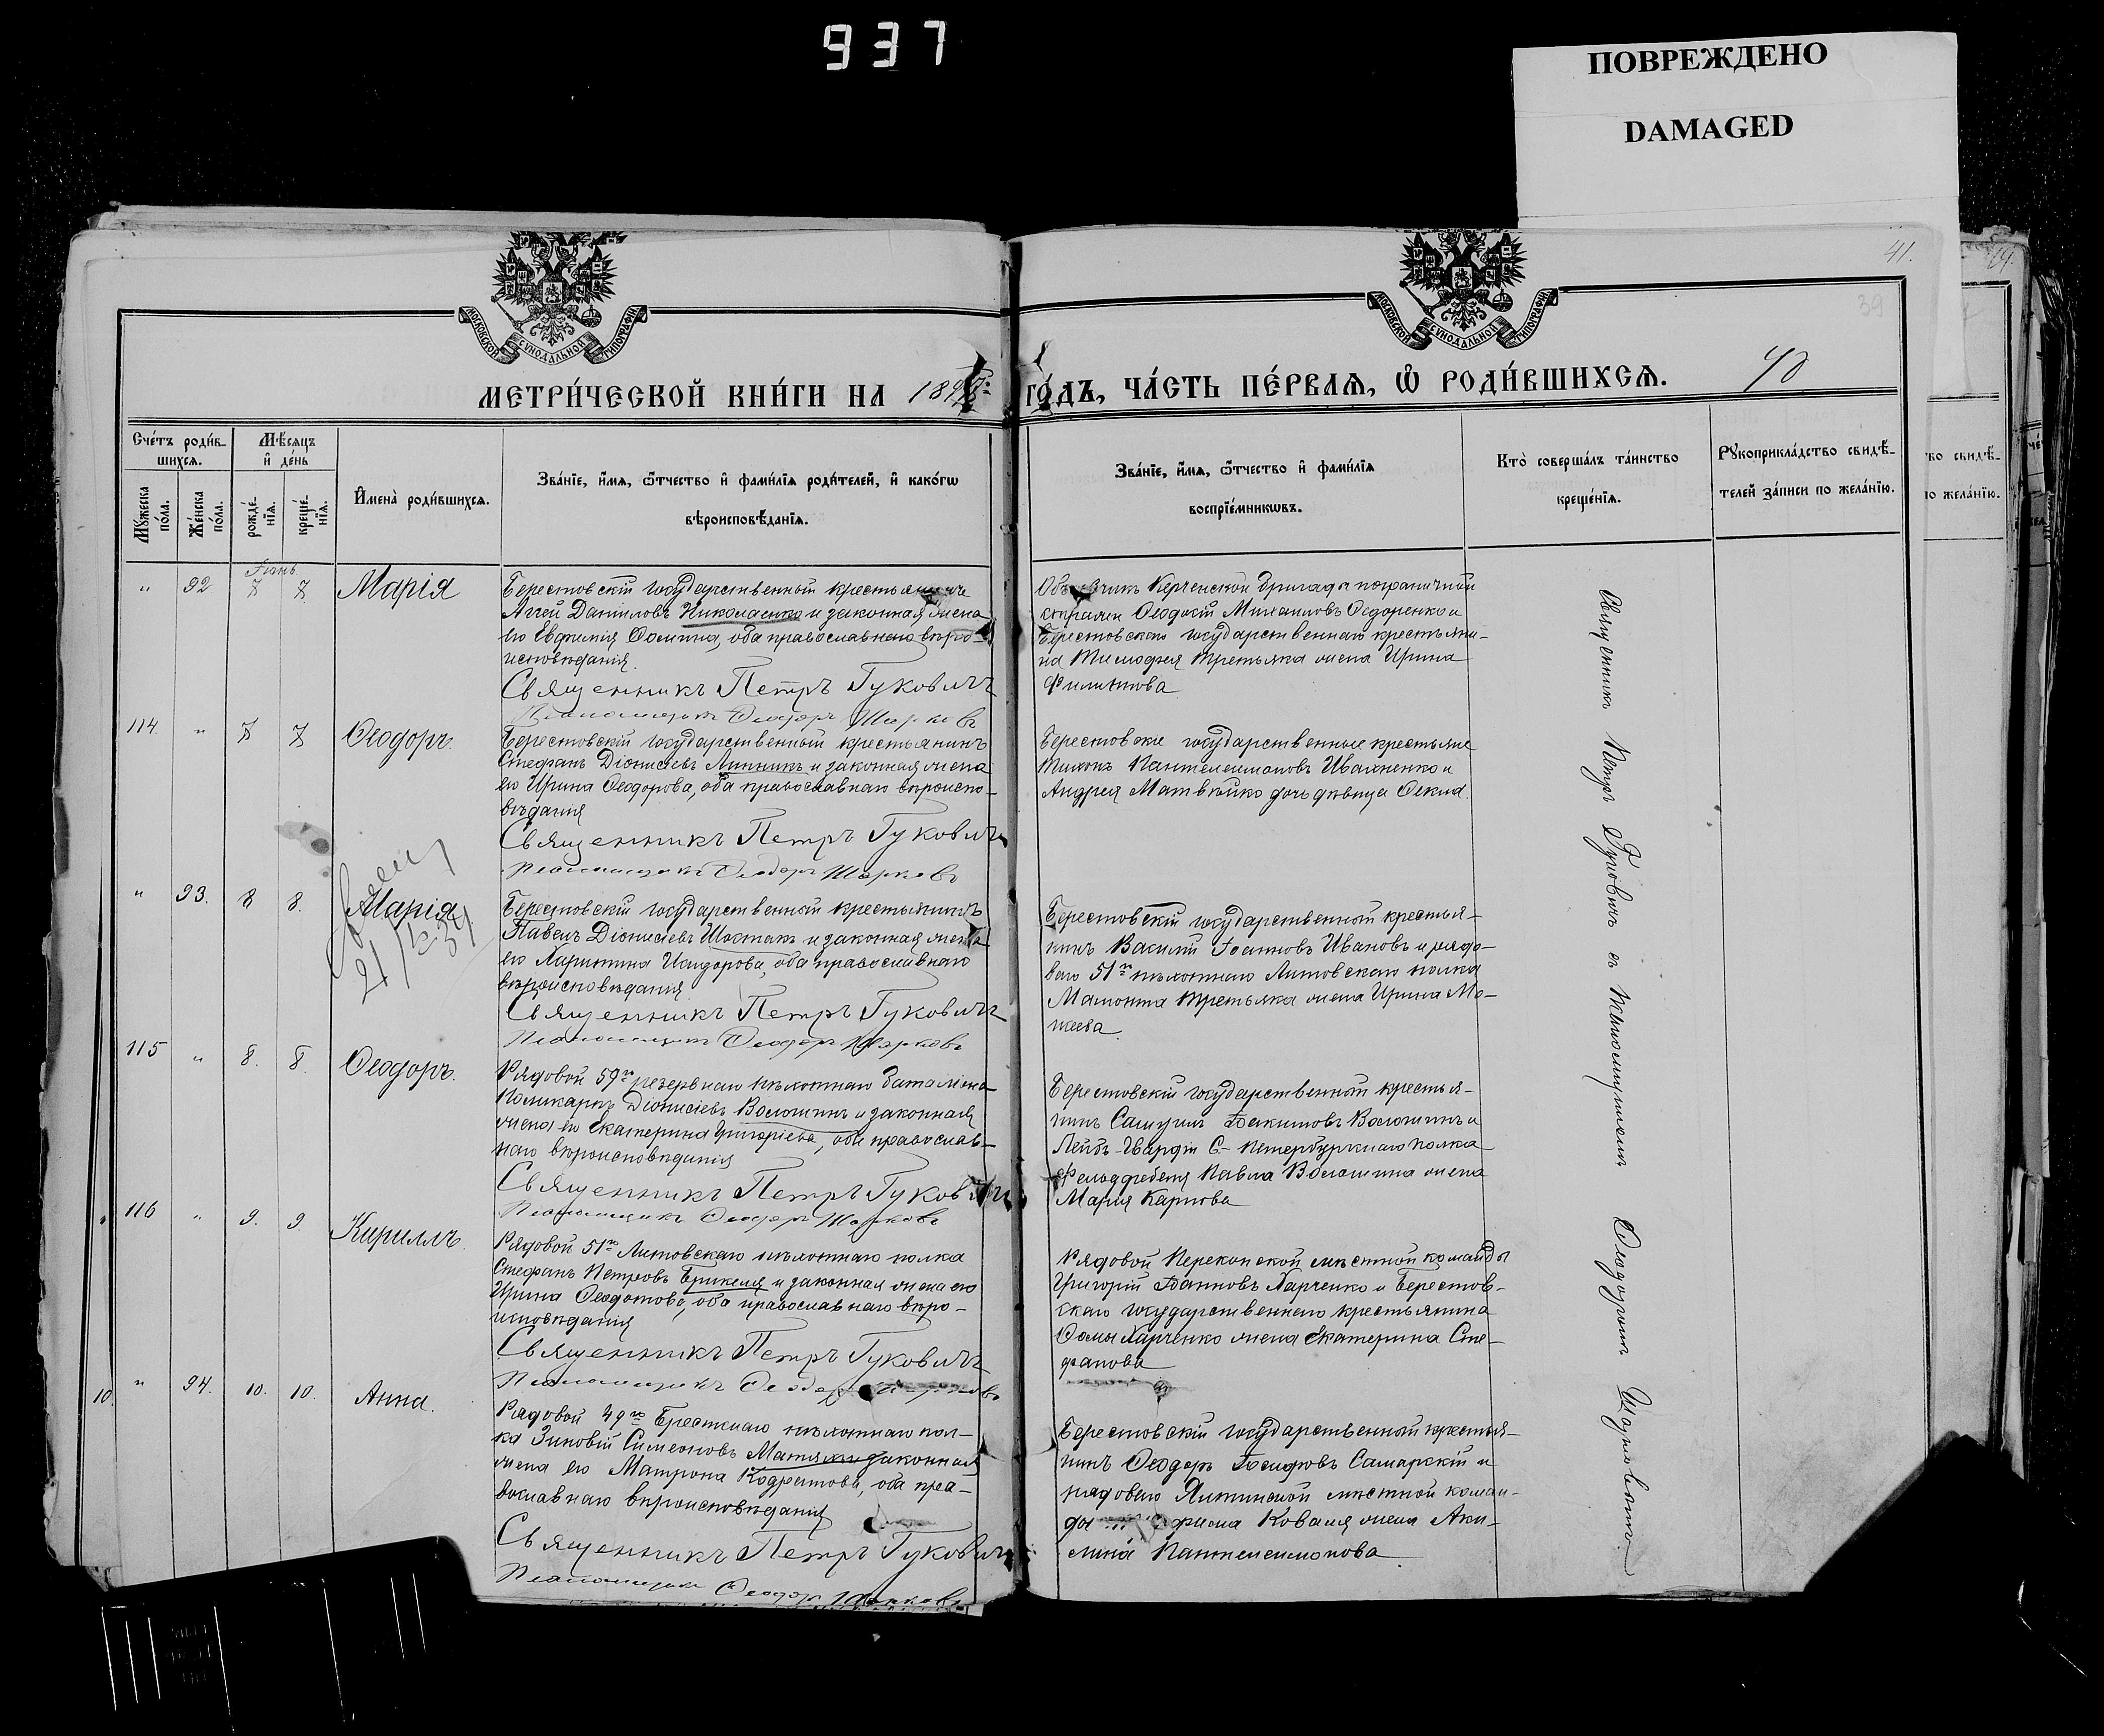 937
ПОВРЕЖДЕНО
DAMAGED
41.
39
40
МОСКОВСКОЙ СѴНОДАЛЬНОЙ ТИПОГРАФІИ
МОСКОВСКОЙ СѴНОДАЛЬНОЙ ТИПОГРАФІИ
МЕТРИ́ЧЕСКОЙ КНИ́ГИ НА 189
ГО́ДЪ, ЧА́СТЬ ПЕ́РВАѦ, Ѽ РОДИ́ВШИХСѦ.
Сче́тъ роди́в-
шихсѧ.
Мꙋ́жеска
по́ла.
Же́нска
по́ла.
Мѣ́сѧцъ
и҆ де́нь
рожде́-
нїѧ.
креще́-
нїѧ.
И҆мена̀ роди́вшихсѧ.
Зва́нїе, и҆́мѧ, ѻ҆́тчество и҆ фами́лїѧ роди́телей, и҆ како́гѡ
вѣроисповѣ́данїѧ.
Зва́нїе, и҆́мѧ, ѻ҆́тчество и҆ фами́лїѧ
воспрїе́мникѡвъ.
Кто̀ соверша́лъ та́инство
креще́нїѧ.
Рꙋкоприкла́дство свидѣ́-
телей за́писи по жела́нїю.
Іюнь
" 92 7 7 Марія
Берестовскій государственный крестьянинъ
Аггей Даниловъ Николаенко и законная жена
его Евфимія Ѳомина, оба православнаго вѣро-
исповѣданія.
Священникъ Петръ Гуковичъ
Псаломщикъ Ѳеодоръ Шарковъ
Керченской бригады пограничной
стражи Ѳеодосій Михаиловъ Ѳедоренко и
Берестовскаго государственнаго крестьяни-
на Тимоѳея Третьяка жена Ирина
Филиппова
114. " 7 7 Ѳеодоръ.
Берестовскій государственный крестьянинъ
Стефанъ Діонисіевъ Линникъ и законная жена
его Ирина Ѳеодорова, оба православнаго вѣроиспо-
вѣданія
Священникъ Петръ Гуковичъ
Псаломщикъ Ѳеодоръ Шарковъ
Берестовские государственные крестьяне
Тихонъ Пантелеимоновъ Ивахненко и
Андрея Матвѣйко дочь дѣвица Ѳекла.
" 93. 8 8. Марія
21
Берестовскій государственный крестьянинъ
Павелъ Діонисіевъ Шостакъ и законная жена
его Харитина Исидорова, оба православнаго
вѣроисповѣданія.
Священникъ Петръ Гуковичъ
Псаломщикъ Ѳеодоръ Шарковъ
Берестовскій государственный крестья-
нинъ Василій Іоанновъ Ивановъ и рядо-
ваго 51го пѣхотнаго Литовскаго полка
Мамонта Третьяка жена Ирина Мо-
кеева.
115 " 8. 8. Ѳеодоръ.
Рядовой 59го резервнаго пѣхотнаго баталіона
Поликарпъ Діонисіевъ Волошинъ и законная
жена его Екатерина Григоріева, оба православ-
наго вѣроисповѣданія
Священникъ Петръ Гуковичъ
Псаломщикъ Ѳеодоръ Шарковъ
Берестовскій государственный крестья-
нинъ Самуилъ Іоакимовъ Волошинъ и
Лейбъ-Гвардіи С-Петербургскаго полка
Фельдфебеля Павла Волошина жена
Марія Карпова
116 " 9. 9 Кириллъ.
Рядовой 51го Литовскаго пѣхотнаго полка
Стефанъ Петровъ и законная жена его
Ирина Ѳеодотова, оба православнаго вѣро-
исповѣданія
Священникъ Петръ Гуковичъ
Псаломщикъ Ѳеодоръ Шарковъ
Рядовой Перекопской мѣстной команды
Григорій Іоанновъ Харченко и Берестов-
скаго государственнаго крестьянина
Ѳомы Харченко жена Екатерина Сте-
фанова
10. " 94. 10. 10. Анна.
Рядовой 49го Брестскаго пѣхотнаго пол-
ка Зиновій Симеоновъ законная
жена его Матрона Кодратова, оба пра-
вославнаго вѣроисповѣданія
Священникъ Петръ Гуковичъ
Псаломщикъ Ѳеодоръ Шарковъ
Берестовскій государственный крестья-
нинъ Ѳеодоръ Іосифовъ Самарскій и
рядоваго Ялтинской мѣстной коман-
ды Коваля жена Аки-
лина Пантелеимонова.
Священникъ Петръ Гуковичъ съ псаломщикомъ Ѳеодоромъ Шарковымъ.